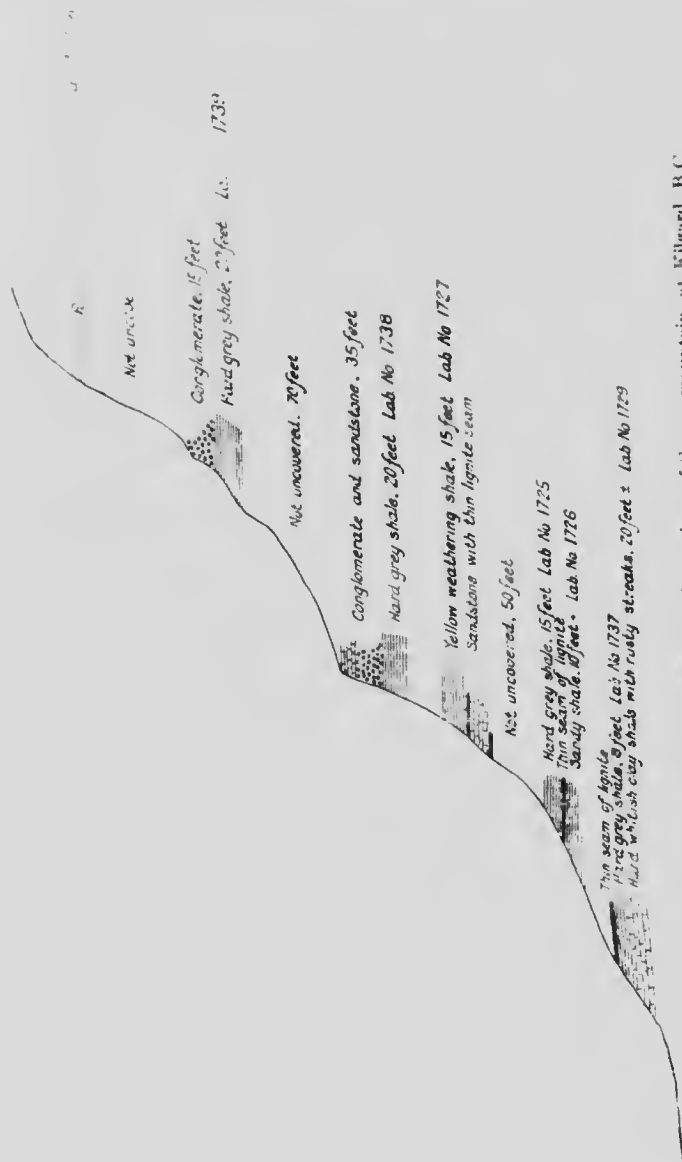 Conglomerate. 15 feet
Hard grey shale. feet 1739
Not uncovered. 70 feet
Conglomerate and sandstone. 35 feet
Hard grey shale. 20 feet Lab No 1738
Yellow weathering shale, 15 feet Lab No 1727
Sandstone with thin lignite seam
Not uncovered, 50 feet
Hard grey shale. 15 feet Lab No 1725
Thin seam of lignite
Sandy shale. 10 feet Lab. No 1726
Thin seam of lignite
Hard grey shale, 8 feet Lab No 1737
Hard whitish clay shale with rusty streaks. 20 feet ± Lab No 1729
mountain at Kilgard, B.C.